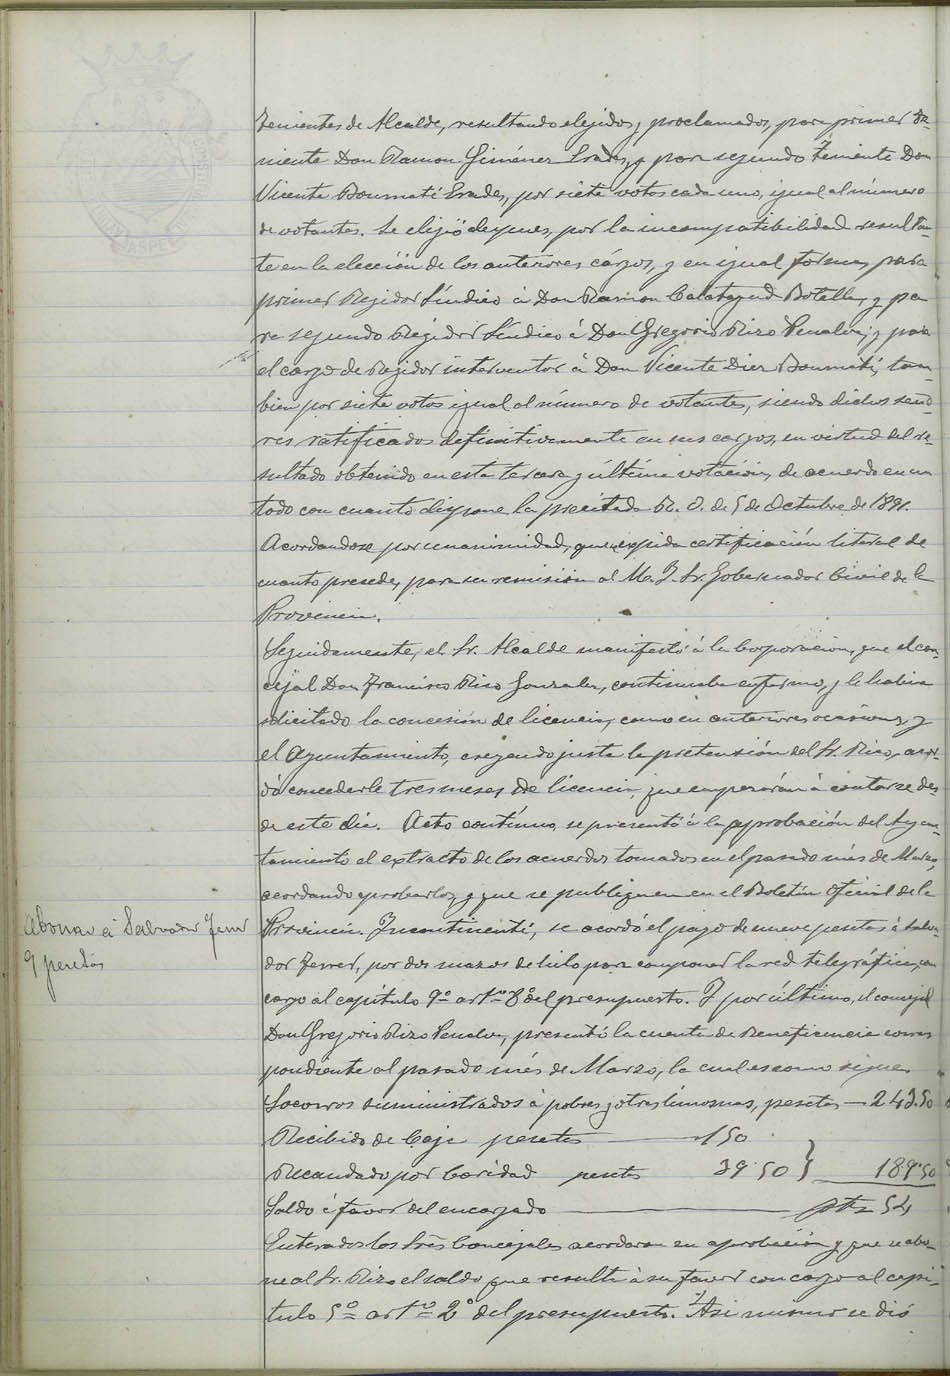 Tenientes de Alcalde, resultando elejidos y proclamados, para primer te-
niente Don Ramon Giménez Prades, y para segundo teniente Don
Vicente Boumatí Prades, por siete votos cada uno, igual al número
de votantes. Se elijió despues, por la incompatibilidad resultan-
te en la elección de los anteriores cárgos, y en igual forma, para
primer Rejidor Síndico á Don Ramon Calatayud Botella, y pa
ra segundo Rejidor Síndico á Don Gregorio Rizo Penalva; y para
el cargo de Rejidor interventor á Don Vicente Diez Boumatí, tam-
bien por siete votos igual al número de votantes, siendo dichos seño-
res ratificados definitivamente en sus cargos, en virtud del re-
sultado obtenido en esta tercera y última votación, de acuerdo en un
todo con cuanto dispone la precitada R. O. de 5 de Octubre de 1891.
Acordandose por unanimidad, que se expida certificación literal de
cuanto precede, para su remisión al M. I. Sr. Gobernador Civil de la
Provincia.
Seguidamente, el Sr. Alcalde manifestó á la Corporacion, que el con-
cejal Don Francisco Rico Gonzalez, continuaba enfermo, y le habia
solicitado la concesión de licencia, como en anteriores ocasiones, y
el Ayuntamiento, creyendo justa la pretensión del Sr. Rico, acor-
dó concederle tres meses de licencia, que empezarán á contarse des-
de este dia. Acto contínuo, se presentó á la aprobación del Ayun-
tamiento el extracto de los acuerdos tomados en el pasado mes de Marzo,
acordando aprobarlos, y que se publiquen en el Boletín Oficial de la
Abonar á Salvador Ferrer
9 pesetas
Provincia. Incontinenti, se acordó el pago de nueve pesetas á Salva-
dor Ferrer, por dos mazos de hilo para componer la red telegráfica, con
cargo al capítulo 9º artº 8º del presupuesto. Y por último, el concejal
Don Gregorio Rizo Penalva, presentó la cuenta de Beneficencia corres
pondiente al pasado més de Marzo, la cual es como sigue.
Socorros suministrados á pobres y otras limosnas, pesetas — 243.50
Recibido de Caja pesetas — 150
Recaudado por Caridad pesetas 39'50 } 189'50
Saldo á favor del encargado — ptas 54
Enterados los Sres Concejales acordaron su aprobación y que se abo-
ne al Sr. Rizo el saldo que resulta á su favor con cargo al capí-
tulo 5º artº 2º del presupuesto. Asi mismo se dió